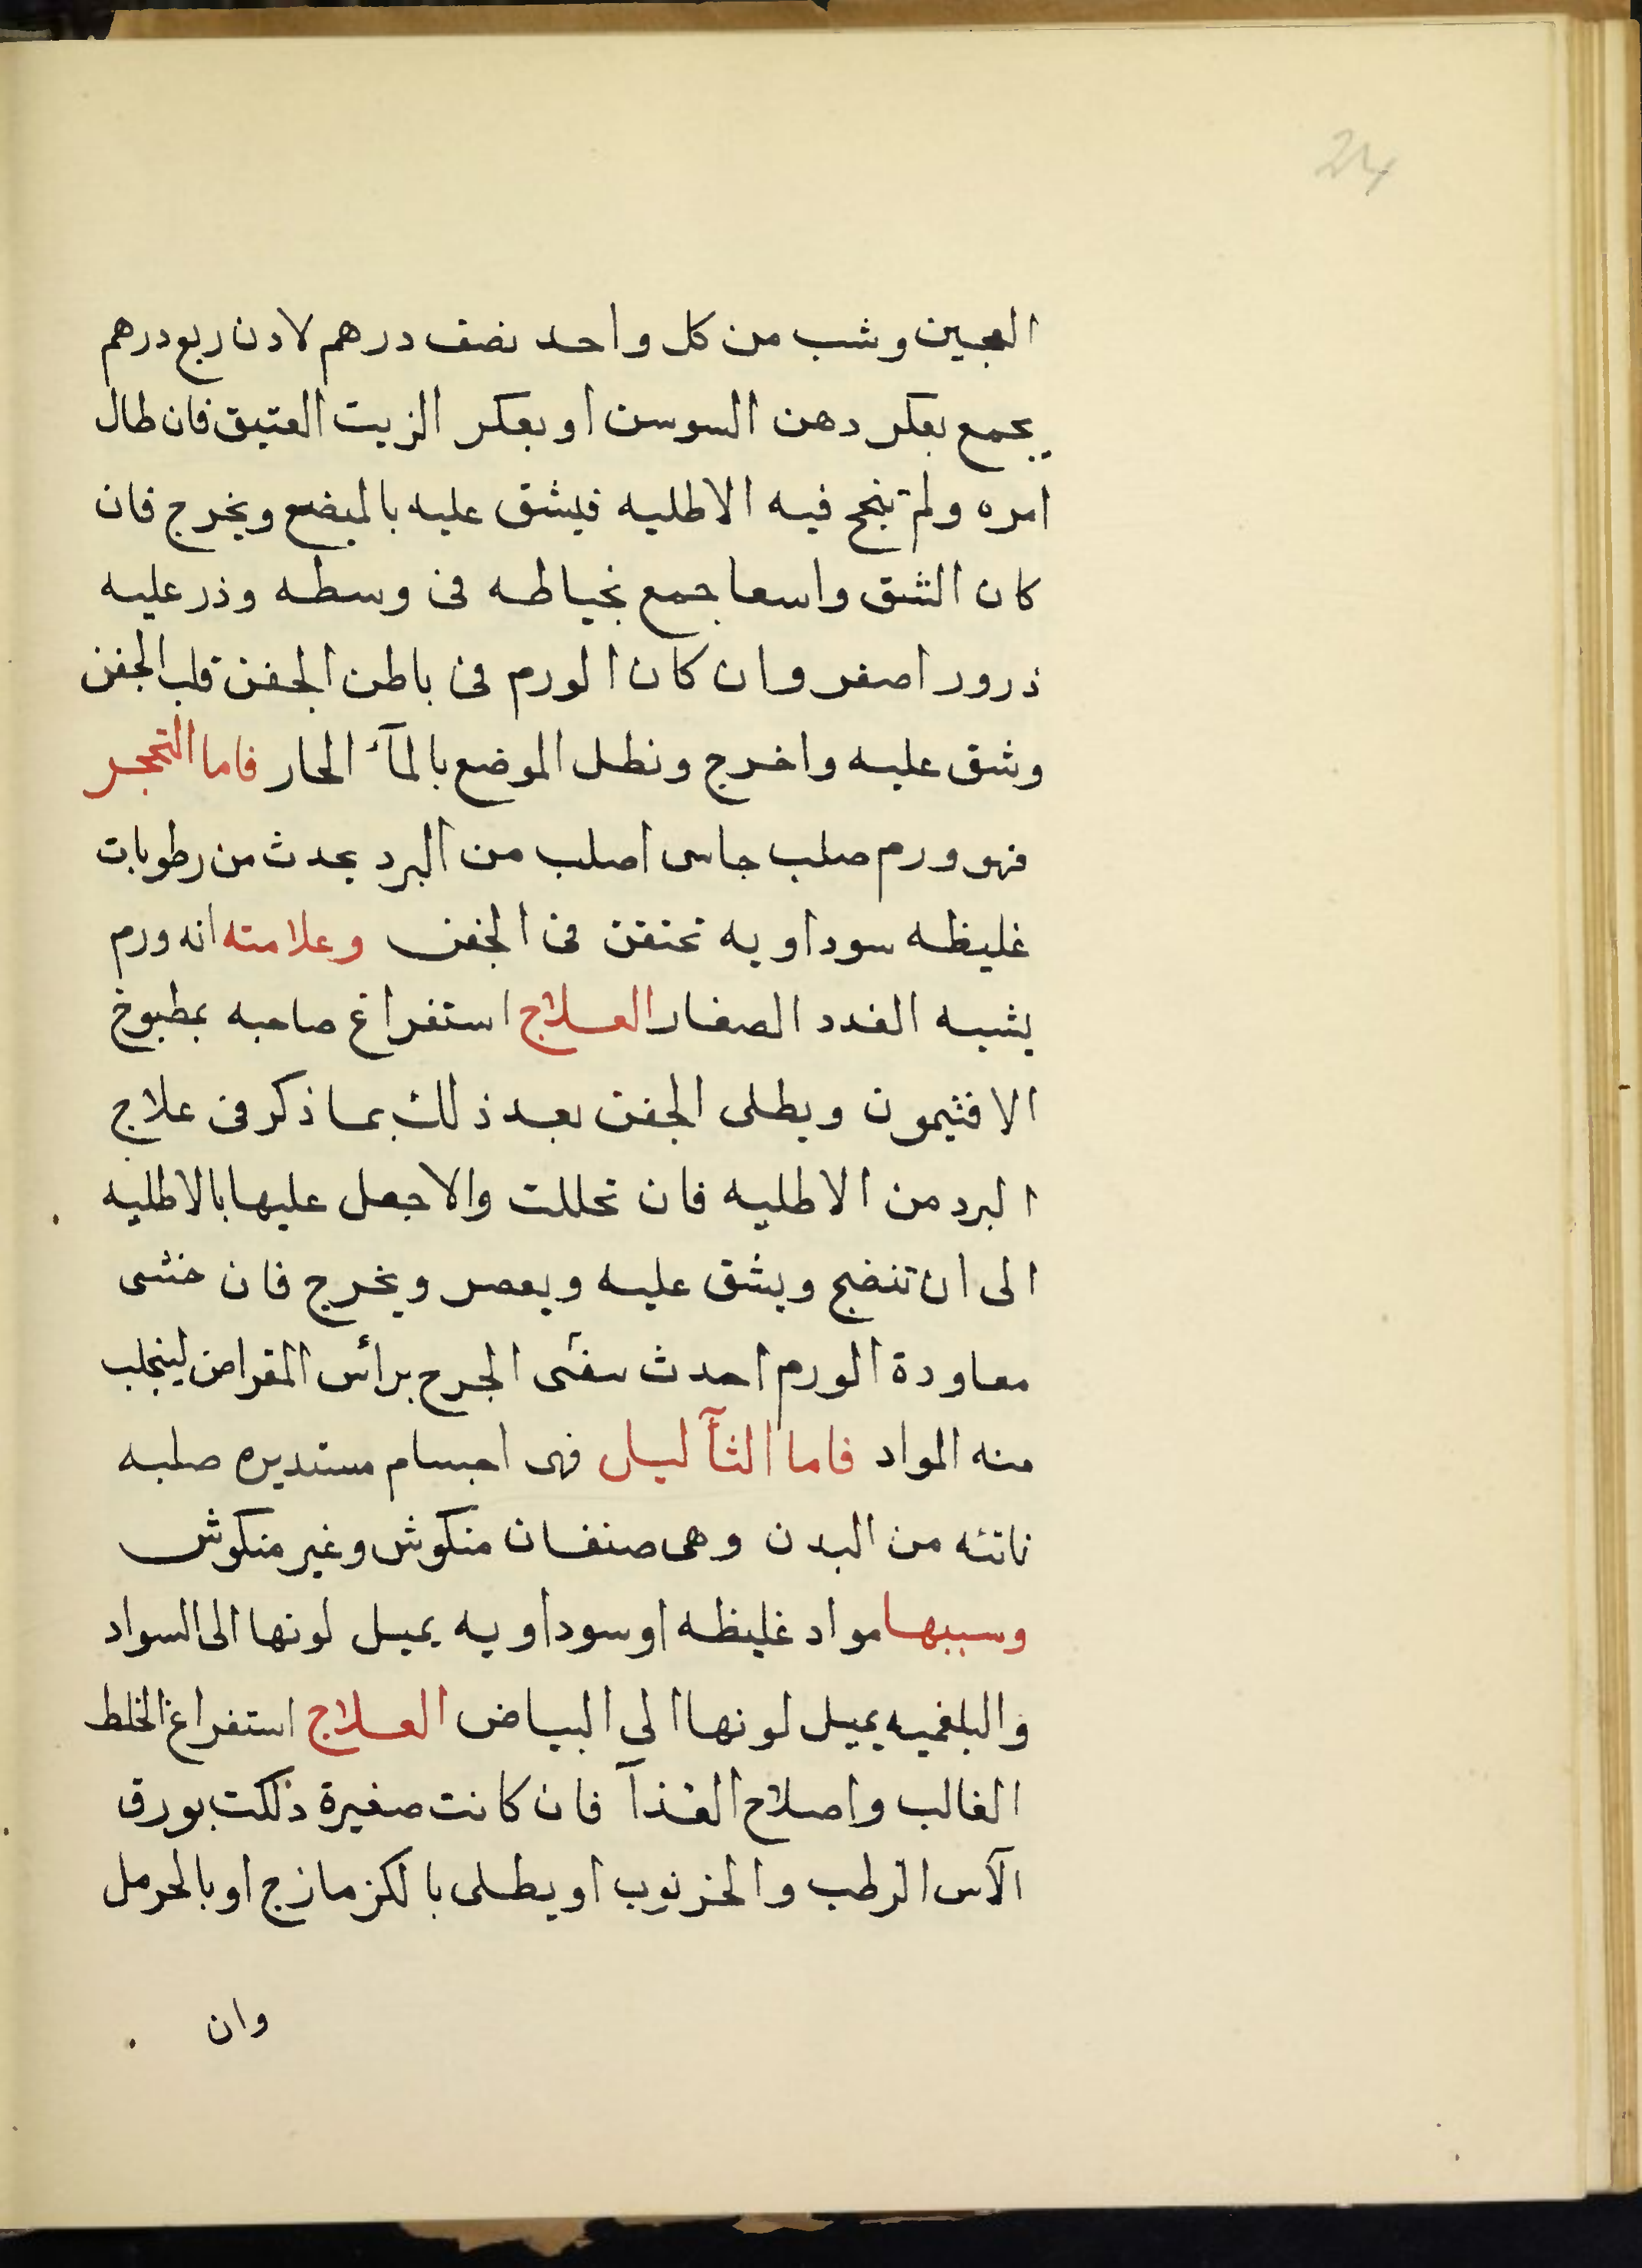 24
العجين وشب من كل واحد نصف درهم لادن ربع درهم
يجمع بعكر دهن السوسن او بعكر الزيت العتيق فان طال
امره ولم تنجح فيه الاطليه فيشق عليه بالمبضع ويخرج فان
كان الشق واسعا جمع بخياطه فى وسطه وذر عليه
ذرور اصفر وان كان الورم فى باطن الجفن قلب الجفن
وشق عليه واخرج ونطل الموضع بالمآء الحار فاما التحجر
فهو ورم صلب جاسى اصلب من البرد يحدث من رطوبات
غليظه سوداويه تحتقن فى الجفن وعلامته انه ورم
يشبه الغدد الصغار العلاج استفراغ صاحبه بمطبوخ
الافثيمون ويطلى الجفن بعد ذلك بما ذكر فى علاج
البرد من الاطليه فان تحللت والا جعل عليها بالاطليه
الى ان تنضج ويشق عليه ويعصر ويخرج فان خشى
معاودة الورم احدث سفتى الجرح برأس المقراض لينجلب
منه المواد فاما الثآليل فهى اجسام مستديره صلبه
ناتئه من البدن وهى صنفان منكوش وغير منكوش
وسببها مواد غليظه او سوداويه يميل لونها الى السواد
والبلغميه يميل لونها الى البياض العلاج استفراغ الخلط
الغالب واصلاح الغذآ فان كانت صغيرة دلكت بورق
الآس الرطب والخرنوب او يطلى بالكزمازج او بالحرمل
وان